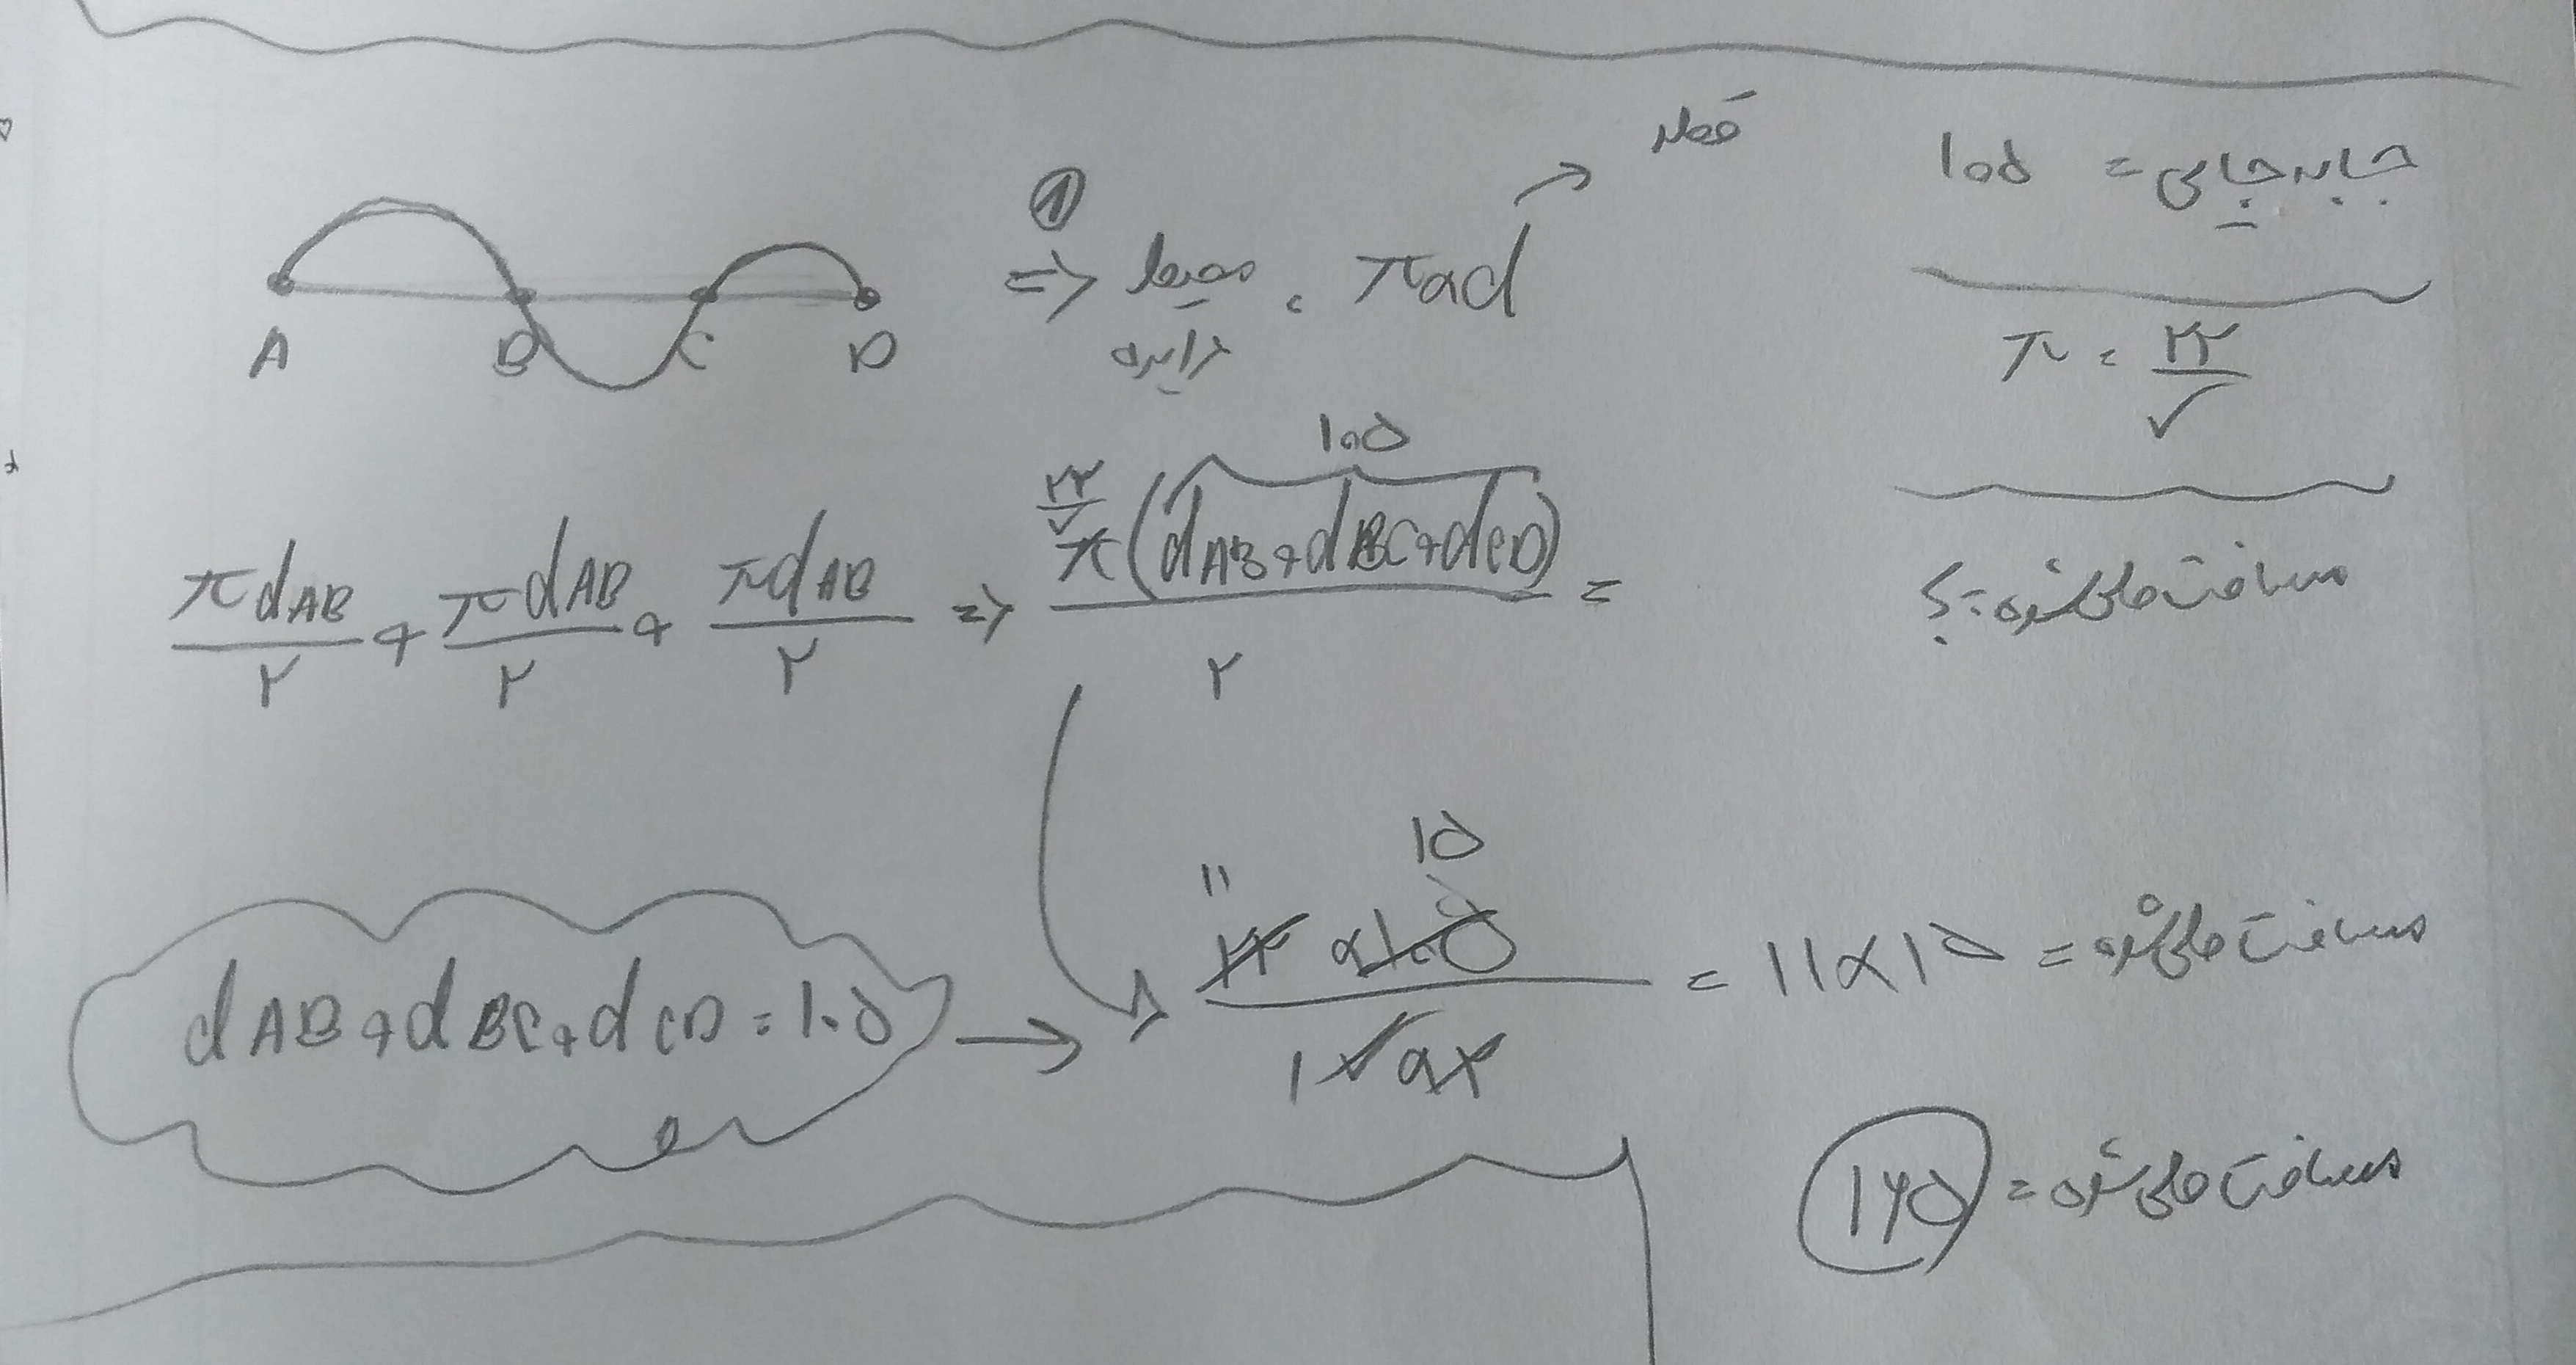 جابه‌جایی = ۱۰۵
π = ۲۲/۷
مسافت طی شده = ؟
A B C D
① => محیط دایره = π×d → قطر
πdAB/۲ + πdAB/۲ + πdAB/۲ => ۲۲/۷ π(dAB+dBC+dCD)/۲ =
۱۰۵
dAB+dBC+dCD = ۱۰۵ →
۱۱ ۱۵
۲۲×۱۰۵/۱ ۷×۲ = ۱۱×۱۵ = مسافت طی شده
۱۶۵ = مسافت طی شده